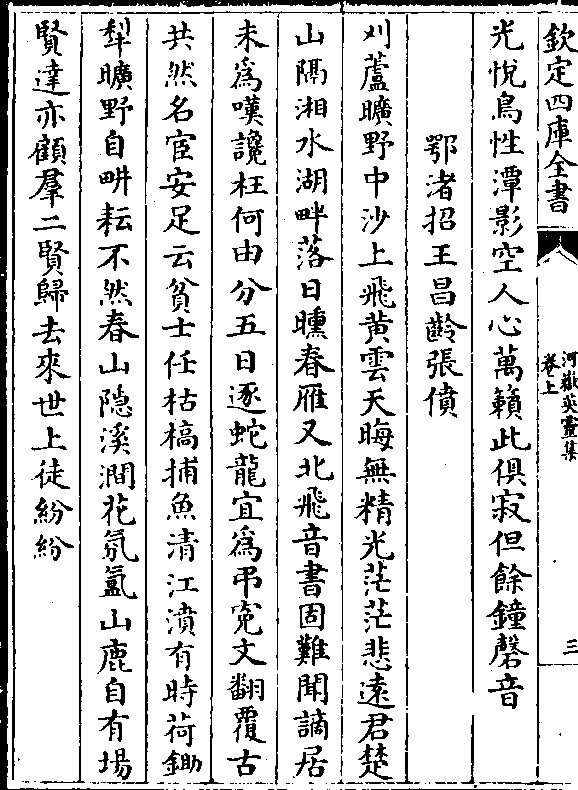 欽定四庫全書
河嶽英靈集
卷上
三
光悅鳥性潭影空人心萬籟此俱寂但餘鐘磬音
鄂渚招王昌齡張僨
刈蘆曠野中沙上飛黄雲天晦無精光茫茫悲遠君楚
山隔湘水湖畔落日曛春雁又北飛音書固難聞謫居
未爲嘆讒枉何由分五日逐蛟龍宜爲弔寃文翻覆古
共然名宦安足云貧士任枯槁捕魚清江濆有時荷鋤
犁曠野自畊耘不然春山隠溪澗花氛氳山鹿自有場
賢達亦顧羣二賢歸去來世上徒紛紛